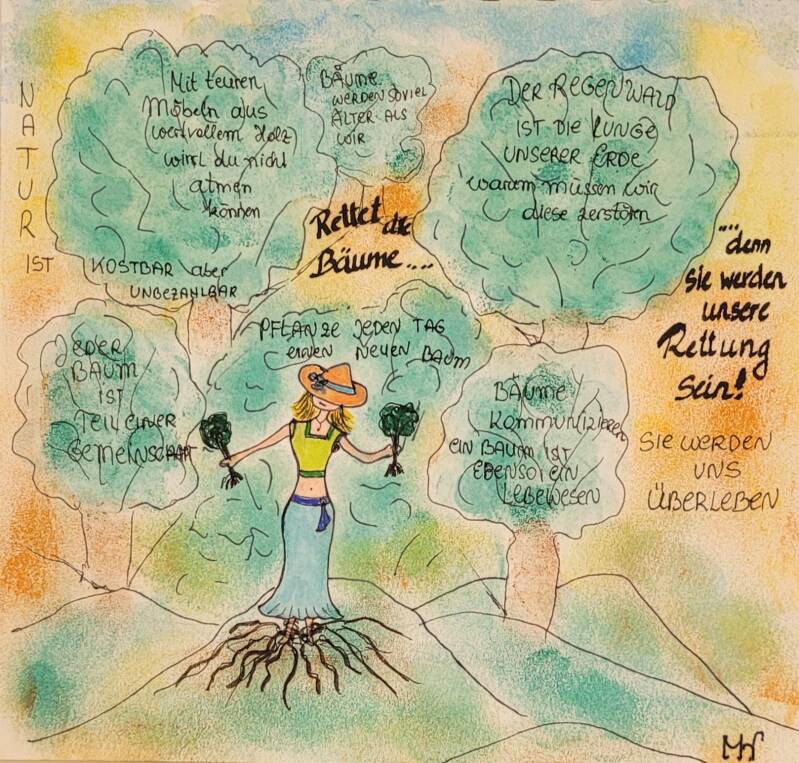 NATUR
IST
KOSTBAR aber
UNBEZAHLBAR
Mit teuren
Möbeln aus
wertvollem Holz
wirst du nicht
atmen
können
BÄUME
WERDEN SOVIEL
ÄLTER ALS
WIR
DER REGENWALD
IST DIE LUNGE
UNSERER ERDE
warum müssen wir
diese zerstören
Rettet die
Bäume....
....denn
sie werden
unsere
Rettung
sein!
PFLANZE JEDEN TAG
EINEN NEUEN BAUM
JEDER
BAUM
IST
TEIL EINER
GEMEINSCHAFT
BÄUME
KOMMUNIZIEREN
EIN BAUM IST
EBENSO EIN
LEBEWESEN
SIE WERDEN
UNS
ÜBERLEBEN